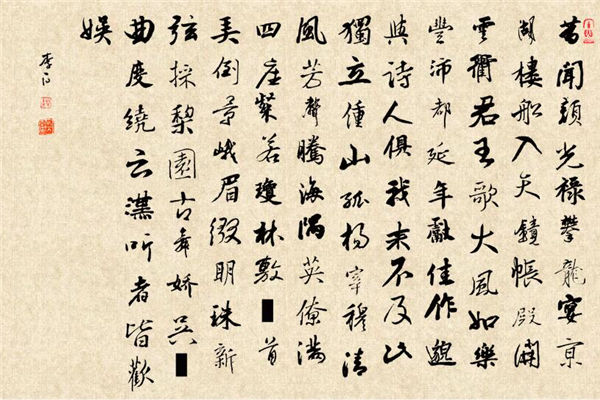 昔聞顔光禄攀龍宴京
湖樓船入天鏡帳殿開
雲衢君王歌大風如樂
豐沛都延年獻佳作邈
與詩人俱我來不及此
獨立鍾山孤楊宰穆清
風芳聲騰海隅英僚滿
四座粲若瓊林敷█首
弄倒景峨眉綴明珠新
弦採梨園古舞嬌吳█
曲度繞云漢听者皆歡
娛
李白